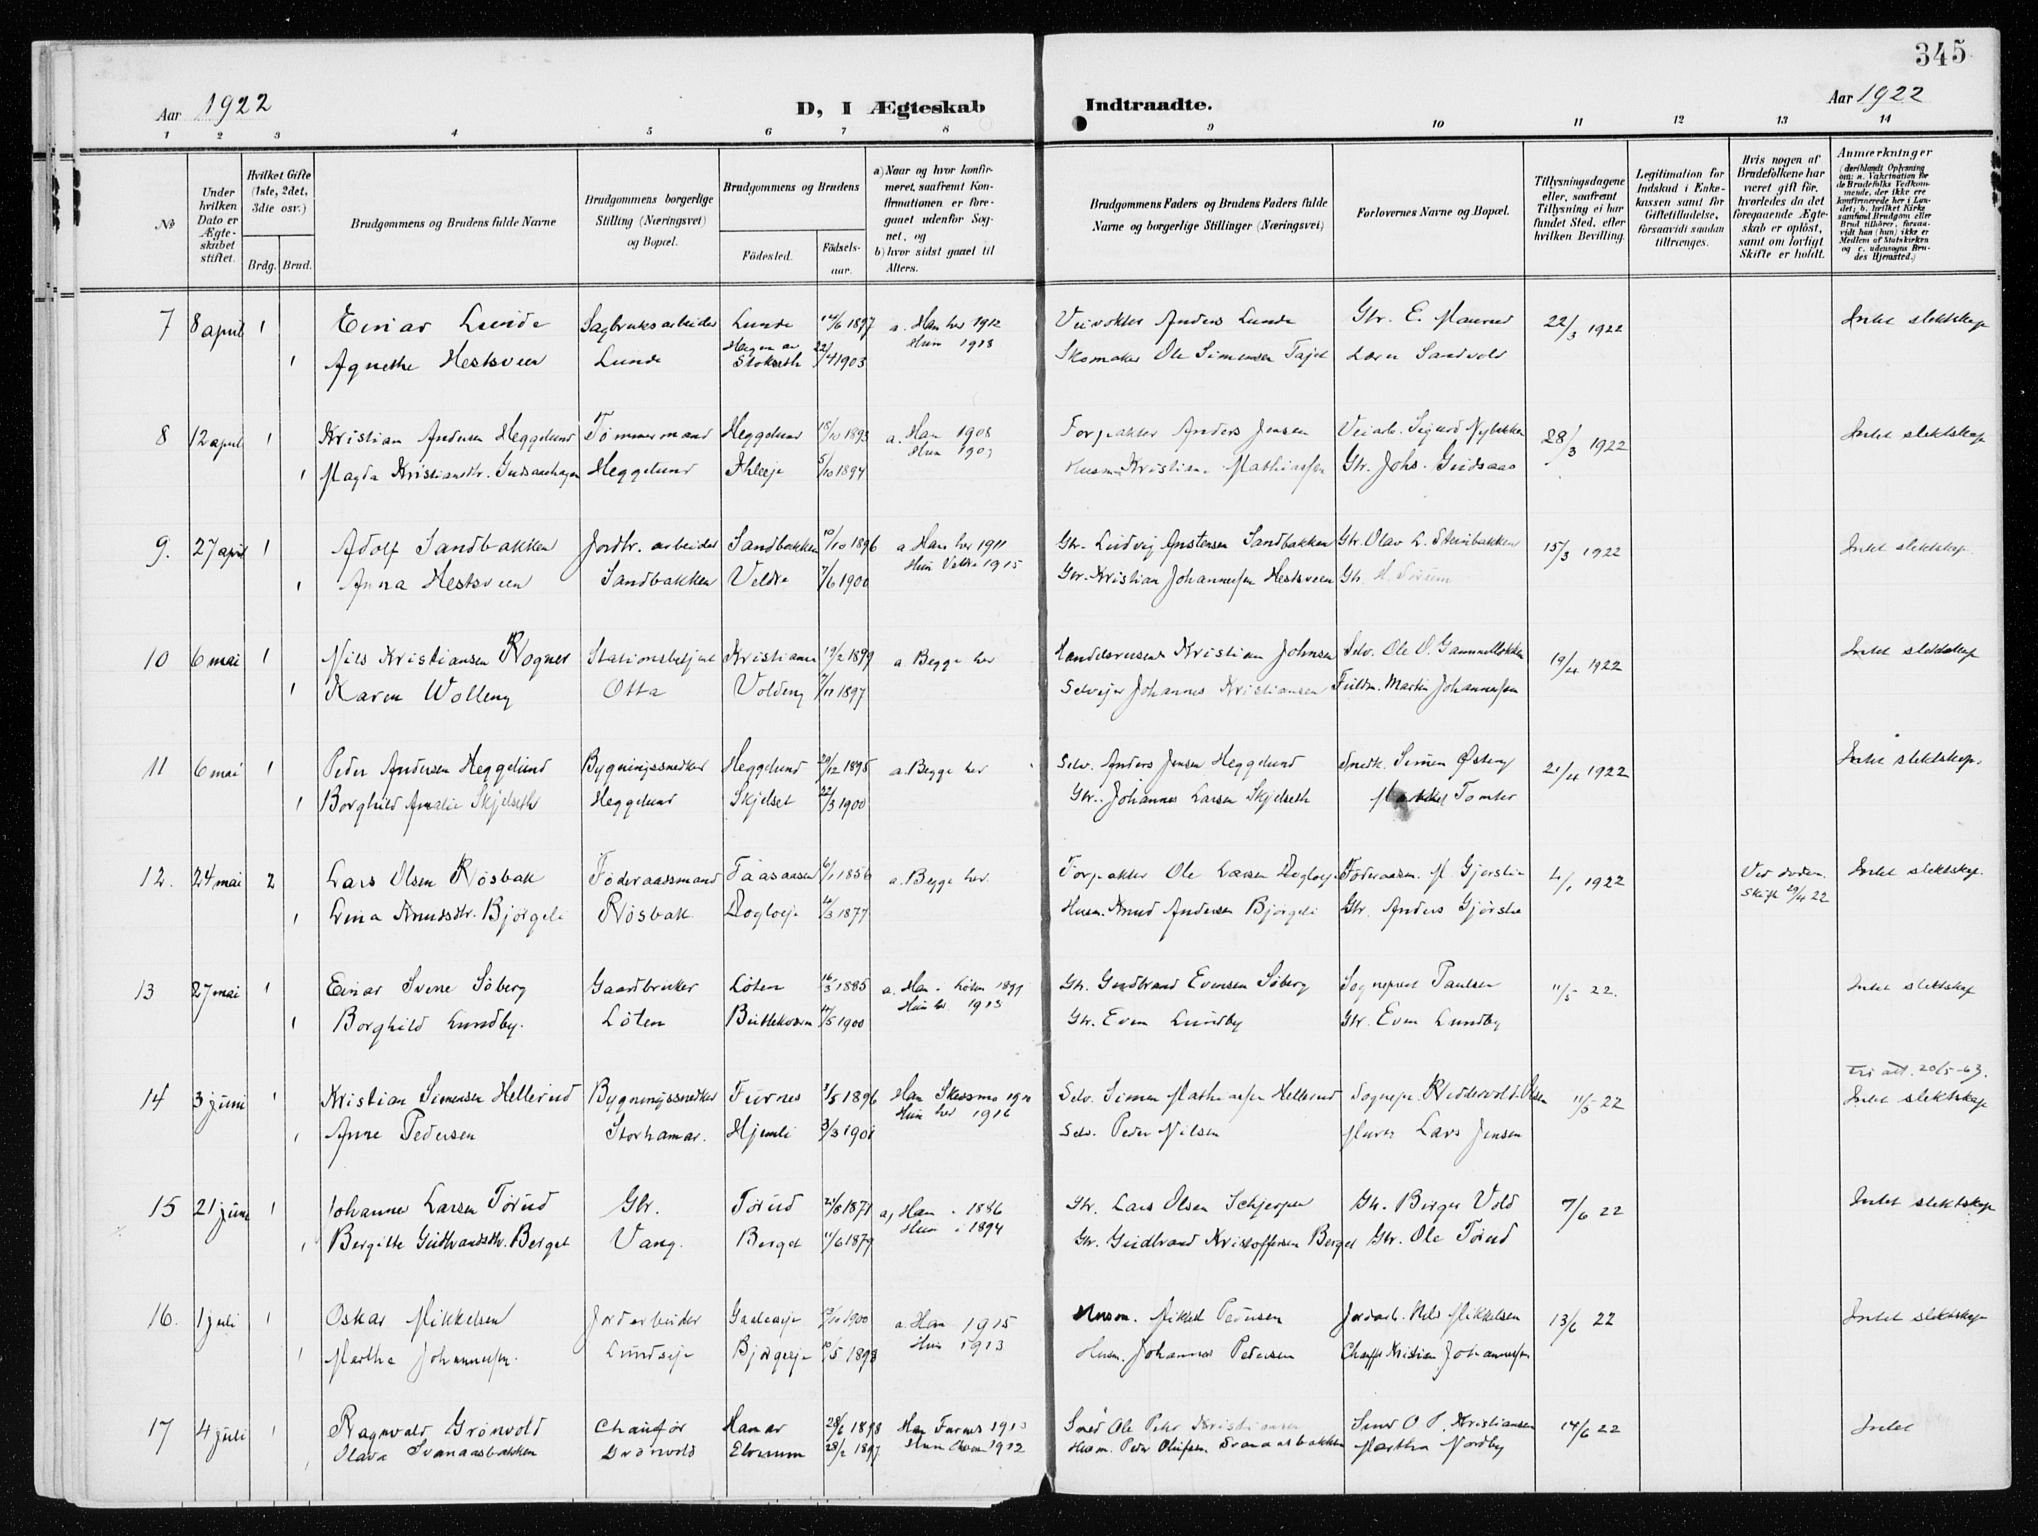 345
Aar 1922
D, I Ægteskab
Indtraadte.
Aar 1922
1 2 3 4 5 6 7 8 9 10 11 12 13 14
No
Under hvilken Dato er Ægteskabet stiftet.
Hvilket Gifte (1ste, 2det, 3die osv.)
Brdg. Brud.
Brudgommens og Brudens fulde Navne
Brudgommens borgerlige Stilling (Næringsvei) og Bopæl.
Brudgommens og Brudens
Födested. Födselsaar.
a) Naar og hvor konfirmeret, saafremt Konfirmationen er foregaaet udenfor Sognet, og
b) hvor sidst gaaet til Alters.
Brudgommens Faders og Brudens Faders fulde Navne og borgerlige Stillinger (Næringsvei)
Forlovernes Navne og Bopæl.
Tillysningsdagene eller, saafremt Tillysning ei har fundet Sted, efter hvilken Bevilling.
Legitimation for Indskud i Enkekassen samt for Giftetilladelse, forsaavidt saadan tiltrænges.
Hvis nogen af Brudefolkene har været gift för, hvorledes da det foregaaende Ægteskab er oplöst, samt om lovligt Skifte er holdt.
Anmærkninger
7 8 april 1 Einar Lunde Sagbruksarbeider Lunde 14/6 1897 a. Han her 1912 Veivokter Anders Lunde Gbr. E. Maurud 22/3 1922 Intet slektskap
1 Agnethe Hestsveen Lunde Stokseth 22/4 1903 Hun 1918 Skomaker Ole Simensen Lærer Sandvold
8 12 april 1 Kristian Andersen Heggelund Tømmermand Heggelund 18/10 1893 a. Han 1908 Forpakter Anders Jensen Veiarb. Sigurd 28/3 1922 Intet slektskap
1 Magda Kristiansdtr. Heggelund 5/10 1894 Hun Husm. Kristian Mathiassen Gbr. Johs. Gudsaas
9. 27 april 1 Adolf Sandbakken Jordbr. arbeider Sandbakken 10/10 1896 a Han her 1911 Gbr. Ludvig Anstensen Sandbakken Gbr. Olav L. Stenibakken 15/3 1922 Intet slektskap.
1 Anna Hestsveen Sandbakken Veldre 7/6 1900 Hun Veldre 1915 Gbr. Kristian Johannessen Hestsveen Gbr. H.
10 6 mai 1 Nils Kristiansen Rogner Stationsbetjent Kristiania 19/2 1899 a. Begge her Handelsreisende Kristian Johnsen Selv. Ole O. Gammelløkken 19/4 1922 Intet slektskap
1 Karen Wolleng Otta Voldeng 7/11 1897 Selveier Johannes Kristiansen Fuldm. Martin Johannessen
11 6 mai 1 Peder Andersen Heggelund Bygningssnedker Heggelund 29/12 1895 a. Begge her Selv. Anders Jensen Heggelund Snedk. Simen Østeng 21/4 1922 Intet slektskap.
1 Borghild Amalie Skjelseth Heggelund Skjelset 22/3 1900 Gbr. Johannes Larsen Skjelseth Tomter
12. 24 mai 2 Lars Olsen Røsbak Føderaadsmand 6/1 1856 a. Begge her. Forpakter Ole Larsen M. Gjørslie 4/1 1922 Ved døden. Skifte 29/4 22 Intet slektskap.
1 Lina Knudsdtr. Bjørgeli Røsbak 4/3 1877 Husm. Knud Andersen Bjørgeli Gbr. Anders Gjørslie
13 27 mai 1 Einar Svene Søberg Gaardbruker Løten 16/3 1885 a. Han. Løten 1899 Gbr. Gudbrand Evensen Søberg Sogneprest Paulsen 11/5 22. Intet slektskap
1 Borghild Lundby. Løten 17/5 1900 Hun her 1915 Gbr. Even Lundby Gbr. Even Lundby
14 3 juni 1 Kristian Simensen Hellerud Bygningssnedker Furnes 3/5 1896 Han Skedsmo 1910 Selv. Simen Mathiassen Hellerud Sognepr. Kiddervold-Olsen 11/5 22 Fri att. 20/5-63. Intet slektskap
1 Anne Pedersen Storhamar. Hjemli 3/3 1901 Hun her 1916 Selv. Peder Nilsen Murer Lars Jensen
15 21 juni 1 Johannes Larsen Torud Gbr. Torud 24/8 1871 a, Han 1886 Gbr. Lars Olsen Schjerpen Gbr. Birger Vold 7/6 22 Intet slektskap
1 Bergitte Gudbrandsdtr. Berget Vang. Berget 11/6 1879 Hun 1894 Gbr. Gudbrand Kristoffersen Berget Gbr. Ole Torud
16. 1 juli 1 Oskar Mikkelsen Jordarbeider 1900 a. Han 1915 Husm. Mikkel Pedersen Jordarb. Nils Mikkelsen 13/6 22 Intet slektskap
1 Martha Johannessen. Lundseje Bjørgeeje 10/5 1898 Hun 1913 Husm. Johannes Pedersen Chauff. Kristian Johannessen
17 4 juli 1 Ragnvald Grønvold Chauffør Hamar 28/6 1898 Han Furnes 1913 Smed Ole Peter Kristiansen Smed O. P. Kristiansen 14/6 22 Intet
1 Olava Svanaasbakken Grønvold Elverum 28/2 1897 Hun 1912 Husm. Peder Olufsen Svanaasbakken Martha Nordby